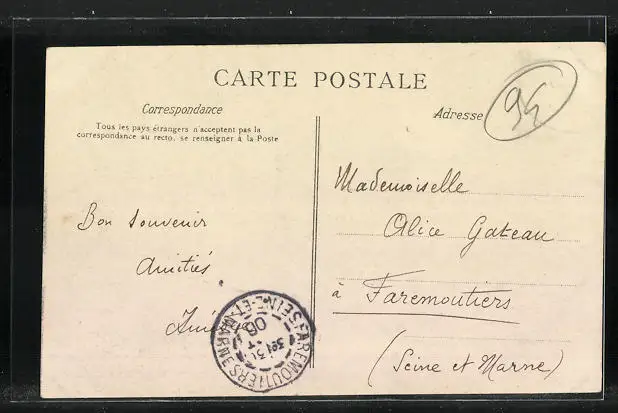 CARTE POSTALE
Correspondance
Tous les pays étrangers n'acceptent pas la
correspondance au recto, se renseigner à la Poste
Adresse
94
Bon souvenir
Amitiés
Mademoiselle
Alice Gateau
à Faremoutiers
(Seine et Marne)
FAREMOUTIERS
SEINE-ET-MARNE
06